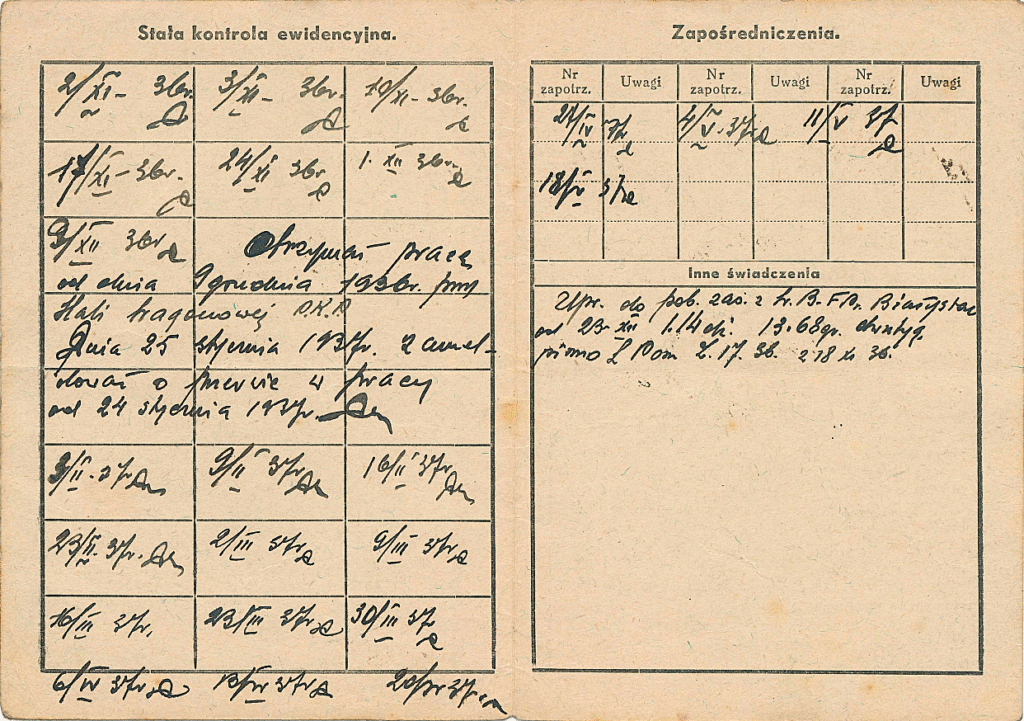 Stała kontrola ewidencyjna.
2/XI- 36r. 3/XI- 36r. 10/XI- 36r.
17/XI- 36r. 24/XI 36r 1. XII 36r.
9/XII 36r Otrzymał pracę
od dnia 9 grudnia 1936r. przy
Hali wagonowej P.K.P
Dnia 25 stycznia 1937r. zamel-
dował o przerwie w pracy
od 24 stycznia 1937r.
3/II. 37r 9/II 37r 16/II 37r
23/II. 37r. 2/III 37r 9/III 37r
16/III 37r. 23/III 37r 30/III 37
6/IV 37r 13/IV 37r 20/IV 37r
Zapośredniczenia.
Nr zapotrz. Uwagi Nr zapotrz. Uwagi Nr zapotrz. Uwagi
27/IV 37r 4/V. 37r 11/V 37
18/V 37r
Inne świadczenia
Upr. do pob. zas. z Białystok
od 23 XII 13.68gr.
pismo 17. 36. 18 36.